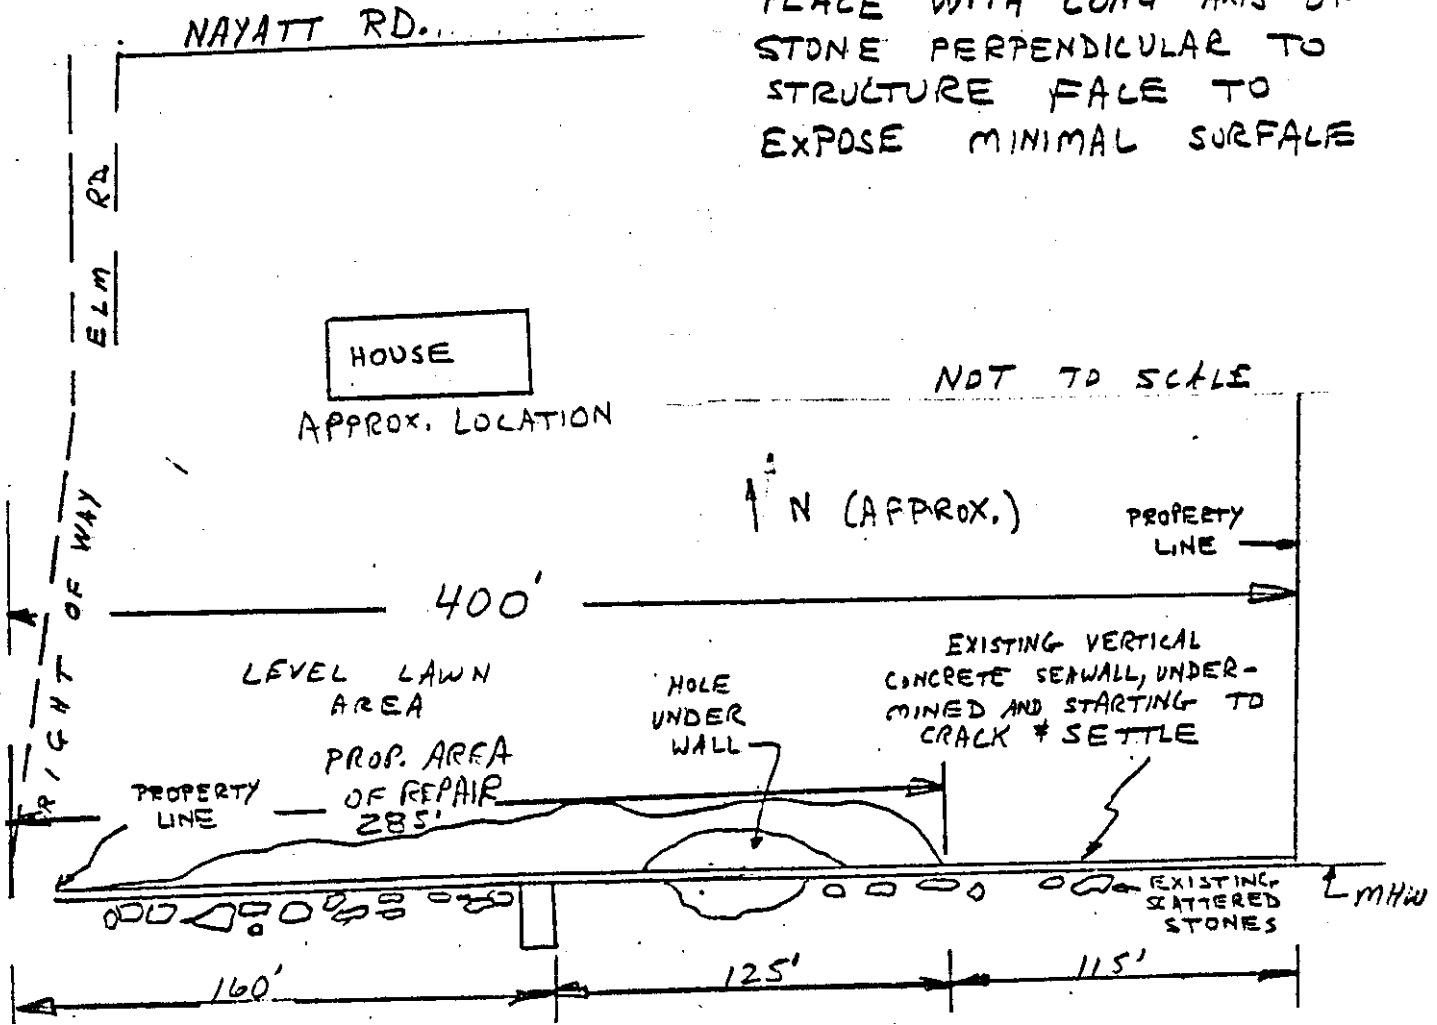 NAYATT RD.
PLACE WITH LONG AXIS OF
STONE PERPENDICULAR TO
STRUCTURE FACE TO
EXPOSE MINIMAL SURFACE
ELM RD
HOUSE
APPROX. LOCATION
NOT TO SCALE
N (APPROX.)
PROPERTY
LINE
RIGHT OF WAY
400'
LEVEL LAWN
AREA
HOLE
UNDER
WALL
EXISTING VERTICAL
CONCRETE SEAWALL, UNDER-
MINED AND STARTING TO
CRACK & SETTLE
PROP. AREA
OF REPAIR
285'
PROPERTY
LINE
EXISTING
SCATTERED
STONES
MHW
160'
125'
115'